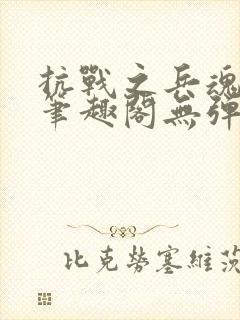 抗戰之兵魂
筆趣閣無彈
比克勞塞維茨